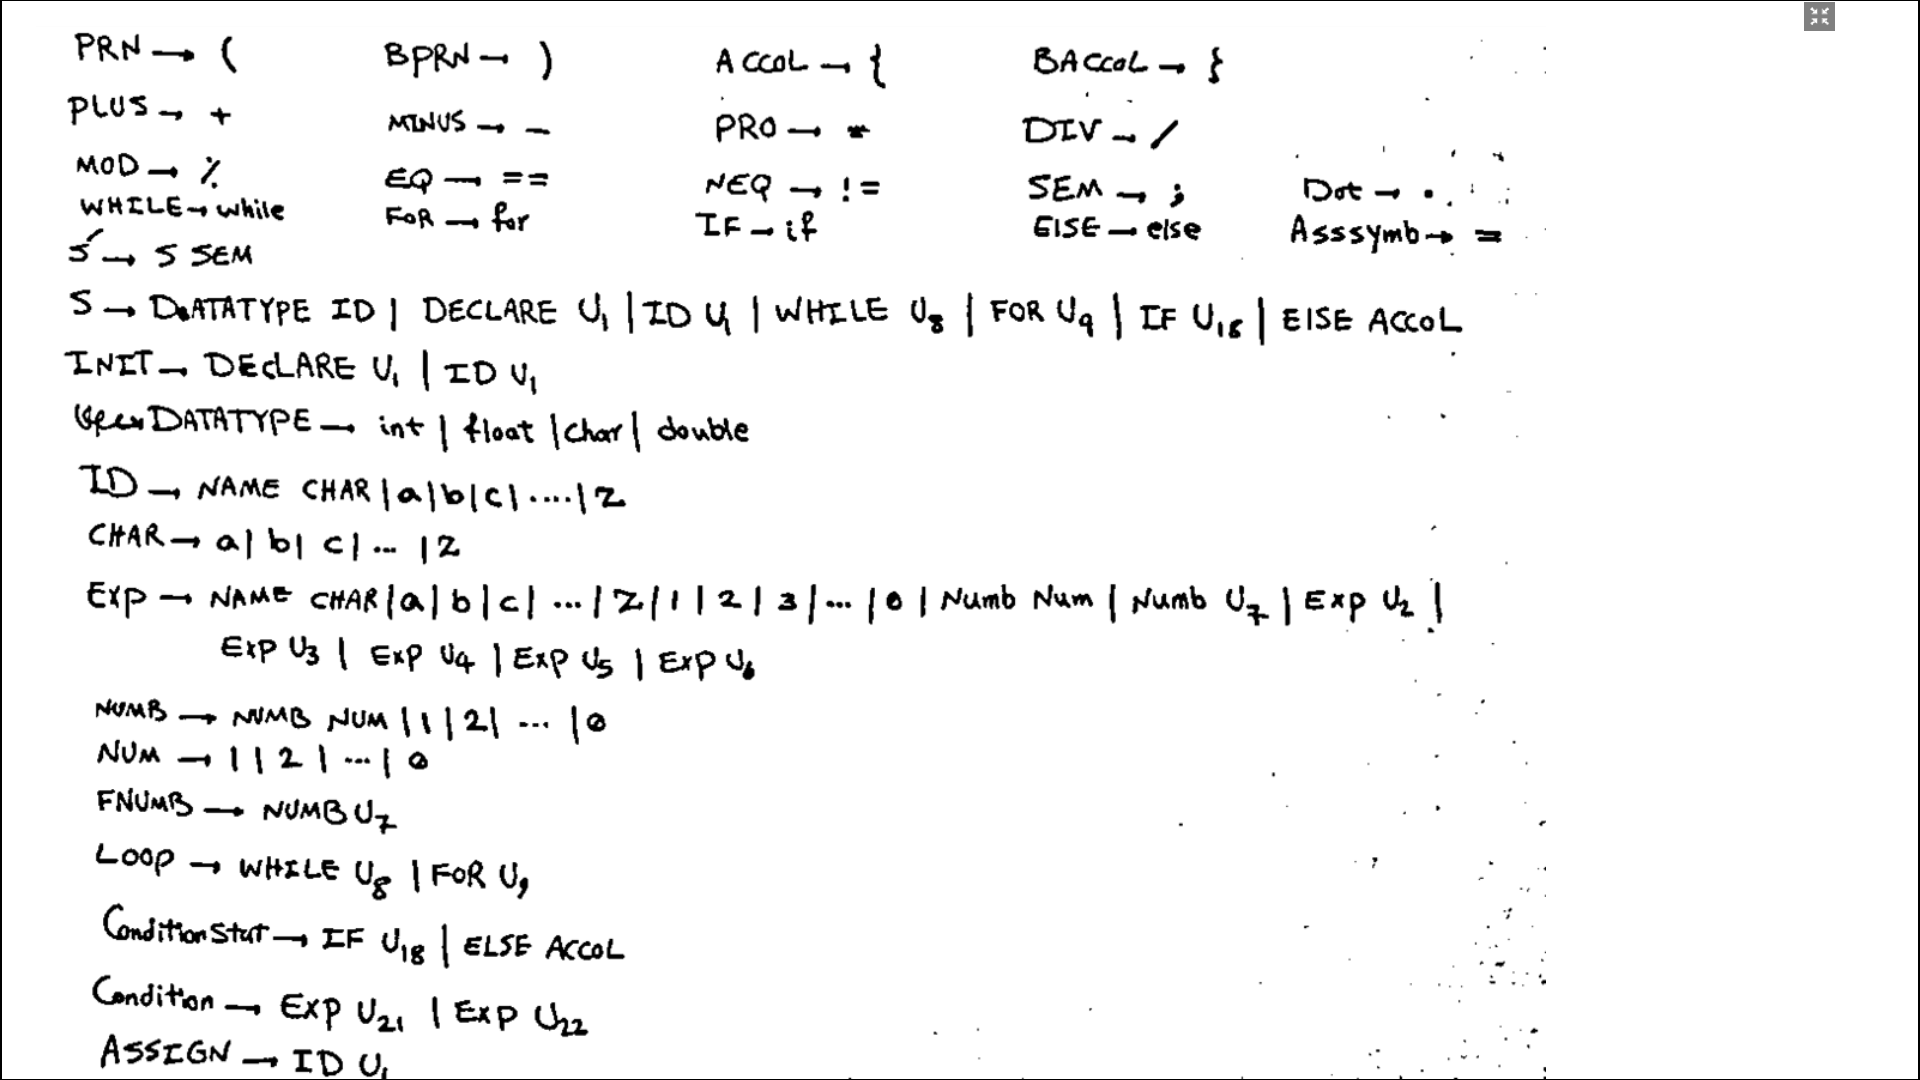 PRN → ( BPRN → ) ACCOL → { BACCOL → }
PLUS → + MINUS → - PRO → * DIV → /
MOD → % EQ → == NEQ → != SEM → ; Dot → .
WHILE → while FOR → for IF → if ElSE → else Asssymb → =
S' → S SEM
S → DATATYPE ID | DECLARE U1 | ID U1 | WHILE U8 | FOR U9 | IF U18 | ElSE ACCOL
INIT → DEClARE U1 | ID U1
DATATYPE → int | float | char | double
ID → NAME CHAR | a | b | c | .... | Z
CHAR → a | b | c | ... | Z
Exp → NAME CHAR | a | b | c | ... | Z | 1 | 2 | 3 | ... | 0 | Numb Num | Numb U7 | Exp U2 |
Exp U3 | Exp U4 | Exp U5 | Exp U6
NUMB → NUMB NUM | 1 | 2 | ... | 0
NUM → 1 | 2 | ... | 0
FNUMB → NUMB U7
LOOP → WHILE U8 | FOR U9
ConditionStat → IF U18 | ELSE ACCOL
Condition → Exp U21 | Exp U22
ASSIGN → ID U1